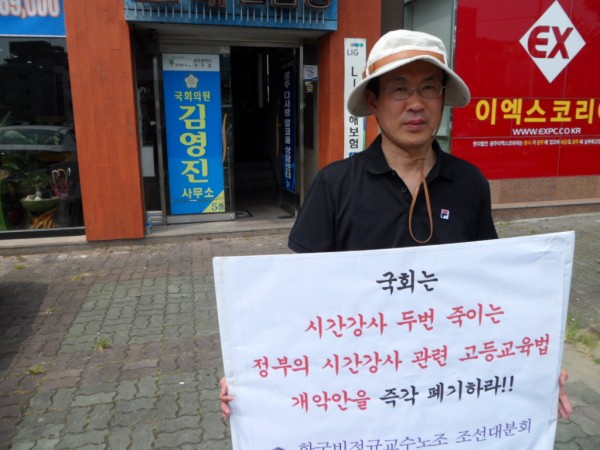 69,000
국회의원
김영진
사무소
5층
LIG
광주 다사랑 알코올 상담센터
해보험
EX
이엑스코리아
WWW.EXPC.CO.KR
국회는
시간강사 두번 죽이는
정부의 시간강사 관련 고등교육법
개악안을 즉각 폐기하라!!
한국비정규교수노조 조선대분회